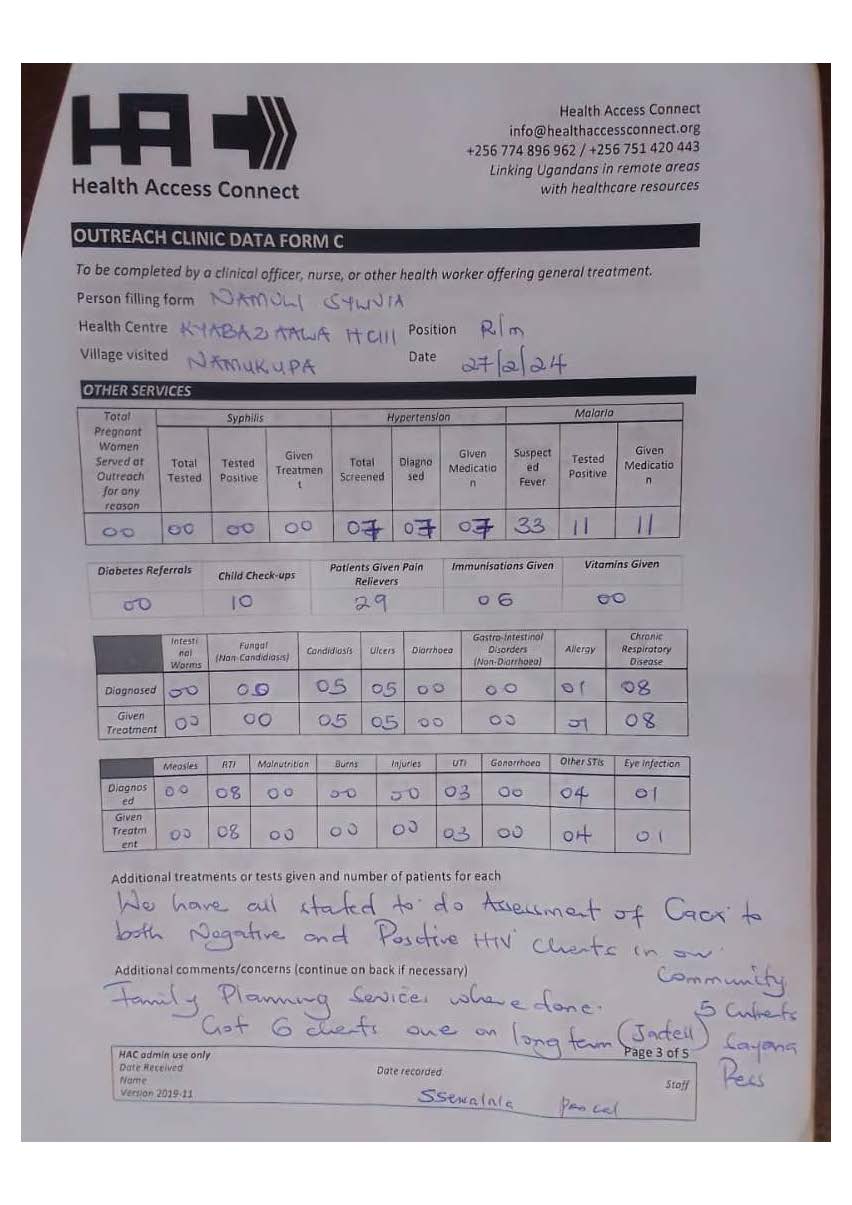 HA
Health Access Connect
Health Access Connect
info@healthaccessconnect.org
+256 774 896 962 / +256 751 420 443
Linking Ugandans in remote areas
with healthcare resources
OUTREACH CLINIC DATA FORM C
To be completed by a clinical officer, nurse, or other health worker offering general treatment.
Person filling form NAMULI SYLVIA
Health Centre KYABAZAAWA HCIII Position R/m
Village visited NAMUKUPA Date 27/2/24
OTHER SERVICES
Total Pregnant Women Served at Outreach for any reason Syphilis Hypertension Malaria
Total Tested Tested Positive Given Treatment Total Screened Diagnosed Given Medication Suspected Fever Tested Positive Given Medication
00 00 00 00 07 07 07 33 11 11
Diabetes Referrals Child Check-ups Patients Given Pain Relievers Immunisations Given Vitamins Given
00 10 29 06 00
Intestinal Worms Fungal (Non-Candidiasis) Candidiasis Ulcers Diarrhoea Gastro-Intestinal Disorders (Non-Diarrhoea) Allergy Chronic Respiratory Disease
Diagnosed 00 00 05 05 00 00 01 08
Given Treatment 00 00 05 05 00 00 01 08
Measles RTI Malnutrition Burns Injuries UTI Gonorrhoea Other STIs Eye Infection
Diagnosed 00 08 00 00 00 03 00 04 01
Given Treatment 00 08 00 00 00 03 00 04 01
Additional treatments or tests given and number of patients for each
We have all stated to do Assessment of Cacx to
both Negative and Positive HIV Clients in our
Community
Additional comments/concerns (continue on back if necessary)
Family Planning Services where done.
Got 6 clients one on long term (Jadell) 5
Sayana
Press
Page 3 of 5
HAC admin use only
Date Received
Date recorded
Name
Staff
Version 2019-11
Pascal